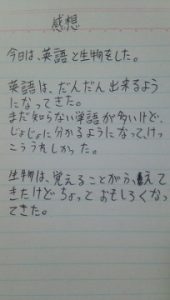 感想
今日は、英語と生物をした。
英語は、だんだん出来るよう
になってきた。
まだ知らない単語が多いけど、
じょじょに分かるようになって、けっ
こううれしかった。
生物は、覚えることがふえて
きたけどちょっとおもしろくなっ
てきた。